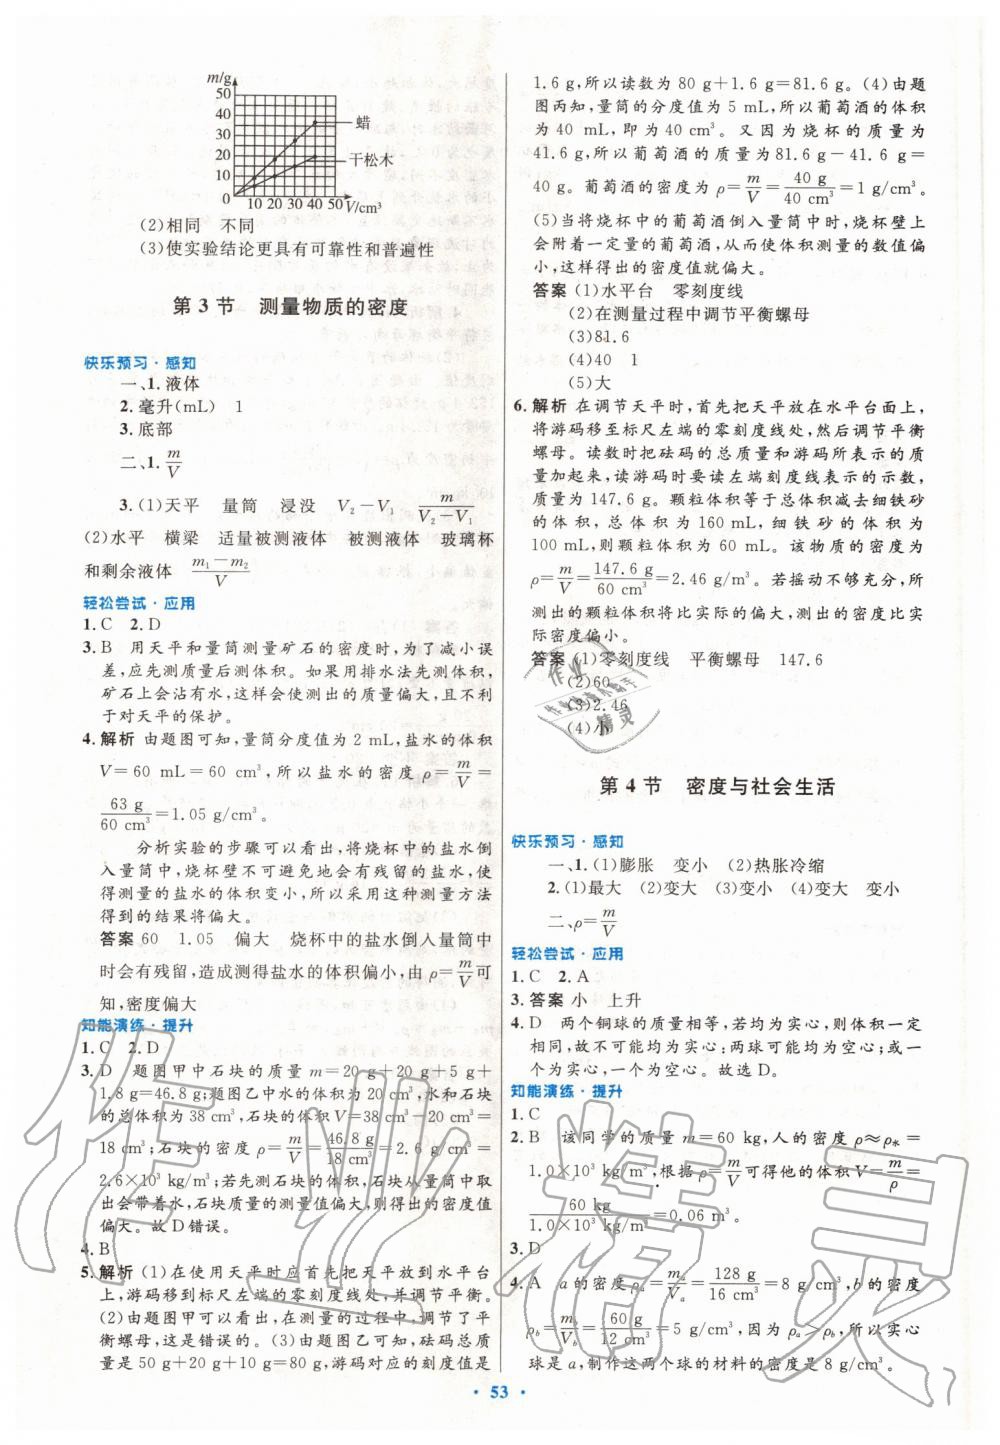 m/g
50
40
30
20
10
0
10 20 30 40 50 V/cm³
蜡
干松木
(2)相同　不同
(3)使实验结论更具有可靠性和普遍性
第 3 节　测量物质的密度
快乐预习·感知
一、1.液体
2.毫升(mL)　1
3.底部
二、1. m/V
3.(1)天平　量筒　浸没　V₂−V₁　m/(V₂−V₁)
(2)水平　横梁　适量被测液体　被测液体　玻璃杯
和剩余液体　(m₁−m₂)/V
轻松尝试·应用
1.C　2.D
3.B　用天平和量筒测量矿石的密度时,为了减小误
差,应先测质量后测体积。如果用排水法先测体积,
矿石上会沾有水,这样会使测出的质量偏大,且不利
于对天平的保护。
4.解析　由题图可知,量筒分度值为 2 mL,盐水的体积
V=60 mL=60 cm³,所以盐水的密度 ρ=m/V=
63 g/60 cm³=1.05 g/cm³。
分析实验的步骤可以看出,将烧杯中的盐水倒
入量筒中,烧杯壁不可避免地会有残留的盐水,使
得测量的盐水的体积变小,所以采用这种测量方法
得到的结果将偏大。
答案 60　1.05　偏大　烧杯中的盐水倒入量筒中
时会有残留,造成测得盐水的体积偏小,由 ρ=m/V可
知,密度偏大
知能演练·提升
1.C　2.D
3.D　题图甲中石块的质量 m=20 g+20 g+5 g+
1.8 g=46.8 g;题图乙中水的体积为 20 cm³,水和石块
的总体积为 38 cm³,石块的体积 V=38 cm³−20 cm³=
18 cm³;石块的密度 ρ=m/V=46.8 g/18 cm³=2.6 g/cm³=
2.6×10³ kg/m³;若先测石块的体积,石块从量筒中取
出会带着水,石块质量的测量值偏大,则得出的密度值
偏大。故 D 错误。
4.B
5.解析　(1)在使用天平时应首先把天平放到水平台
上,游码移到标尺左端的零刻度线处,并调节平衡。
(2)由题图甲可以看出,在测量的过程中调节了平
衡螺母,这是错误的。(3)由题图乙可知,砝码总质
量是 50 g+20 g+10 g=80 g,游码对应的刻度值是
1.6 g,所以读数为 80 g+1.6 g=81.6 g。(4)由题
图丙知,量筒的分度值为 5 mL,所以葡萄酒的体积
为 40 mL,即为 40 cm³。又因为烧杯的质量为
41.6 g,所以葡萄酒的质量为 81.6 g−41.6 g=
40 g。葡萄酒的密度为 ρ=m/V=40 g/40 cm³=1 g/cm³。
(5)当将烧杯中的葡萄酒倒入量筒中时,烧杯壁上
会附着一定量的葡萄酒,从而使体积测量的数值偏
小,这样得出的密度值就偏大。
答案 (1)水平台　零刻度线
(2)在测量过程中调节平衡螺母
(3)81.6
(4)40　1
(5)大
6.解析　在调节天平时,首先把天平放在水平台面上,
将游码移至标尺左端的零刻度线处,然后调节平衡
螺母。读数时把砝码的总质量和游码所表示的质
量加起来,读游码时要读左端刻度线表示的示数,
质量为 147.6 g。颗粒体积等于总体积减去细铁砂
的体积,总体积为 160 mL,细铁砂的体积为
100 mL,则颗粒体积为 60 mL。该物质的密度为
ρ=m/V=147.6 g/60 cm³=2.46 g/m³。若摇动不够充分,所
测出的颗粒体积将比实际的偏大,测出的密度比实
际密度偏小。
答案 (1)零刻度线　平衡螺母　147.6
(2)60
(3)2.46
(4)小
第 4 节　密度与社会生活
快乐预习·感知
一、1.(1)膨胀　变小　(2)热胀冷缩
2.(1)最大　(2)变大　(3)变小　(4)变大　变小
二、ρ=m/V
轻松尝试·应用
1.C　2.A
3.答案 小　上升
4.D　两个铜球的质量相等,若均为实心,则体积一定
相同,故不可能均为实心;两球可能均为空心;或一
个为实心,一个为空心。故选 D。
知能演练·提升
1.C
2.B　该同学的质量 m=60 kg,人的密度 ρ≈ρ水=
1.0×10³ kg/m³,根据 ρ=m/V可得他的体积 V=m/ρ=
60 kg/1.0×10³ kg/m³=0.06 m³。
3.D
4.A　a 的密度 ρₐ=mₐ/Vₐ=128 g/16 cm³=8 g/cm³,b 的密度
ρ_b=m_b/V_b=60 g/12 cm³=5 g/cm³,因为 ρₐ>ρ_b,所以实心
球是 a,制作这两个球的材料的密度是 8 g/cm³。
· 53 ·
作业精灵